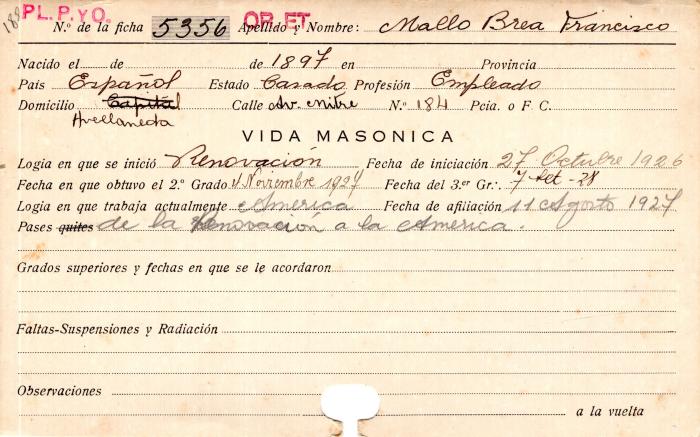 PL. P. YO.
OR. ET.
189
N.º de la ficha 5356 Apellido y Nombre: Mallo Brea Francisco
Nacido el de de 1897 en Provincia
País Español Estado Casado Profesión Empleado
Domicilio Capital Calle Av. Mitre N.º 184 Pcia. o F. C.
Avellaneda
VIDA MASONICA
Logia en que se inició Renovación Fecha de iniciación 27 Octubre 1926
Fecha en que obtuvo el 2.º Grado 4 Noviembre 1927 Fecha del 3.er Gr. 7 Set - 28
Logia en que trabaja actualmente America Fecha de afiliación 11 Agosto 1927
Pases quites de la Renovación a la America.
Grados superiores y fechas en que se le acordaron
Faltas-Suspensiones y Radiación
Observaciones
a la vuelta